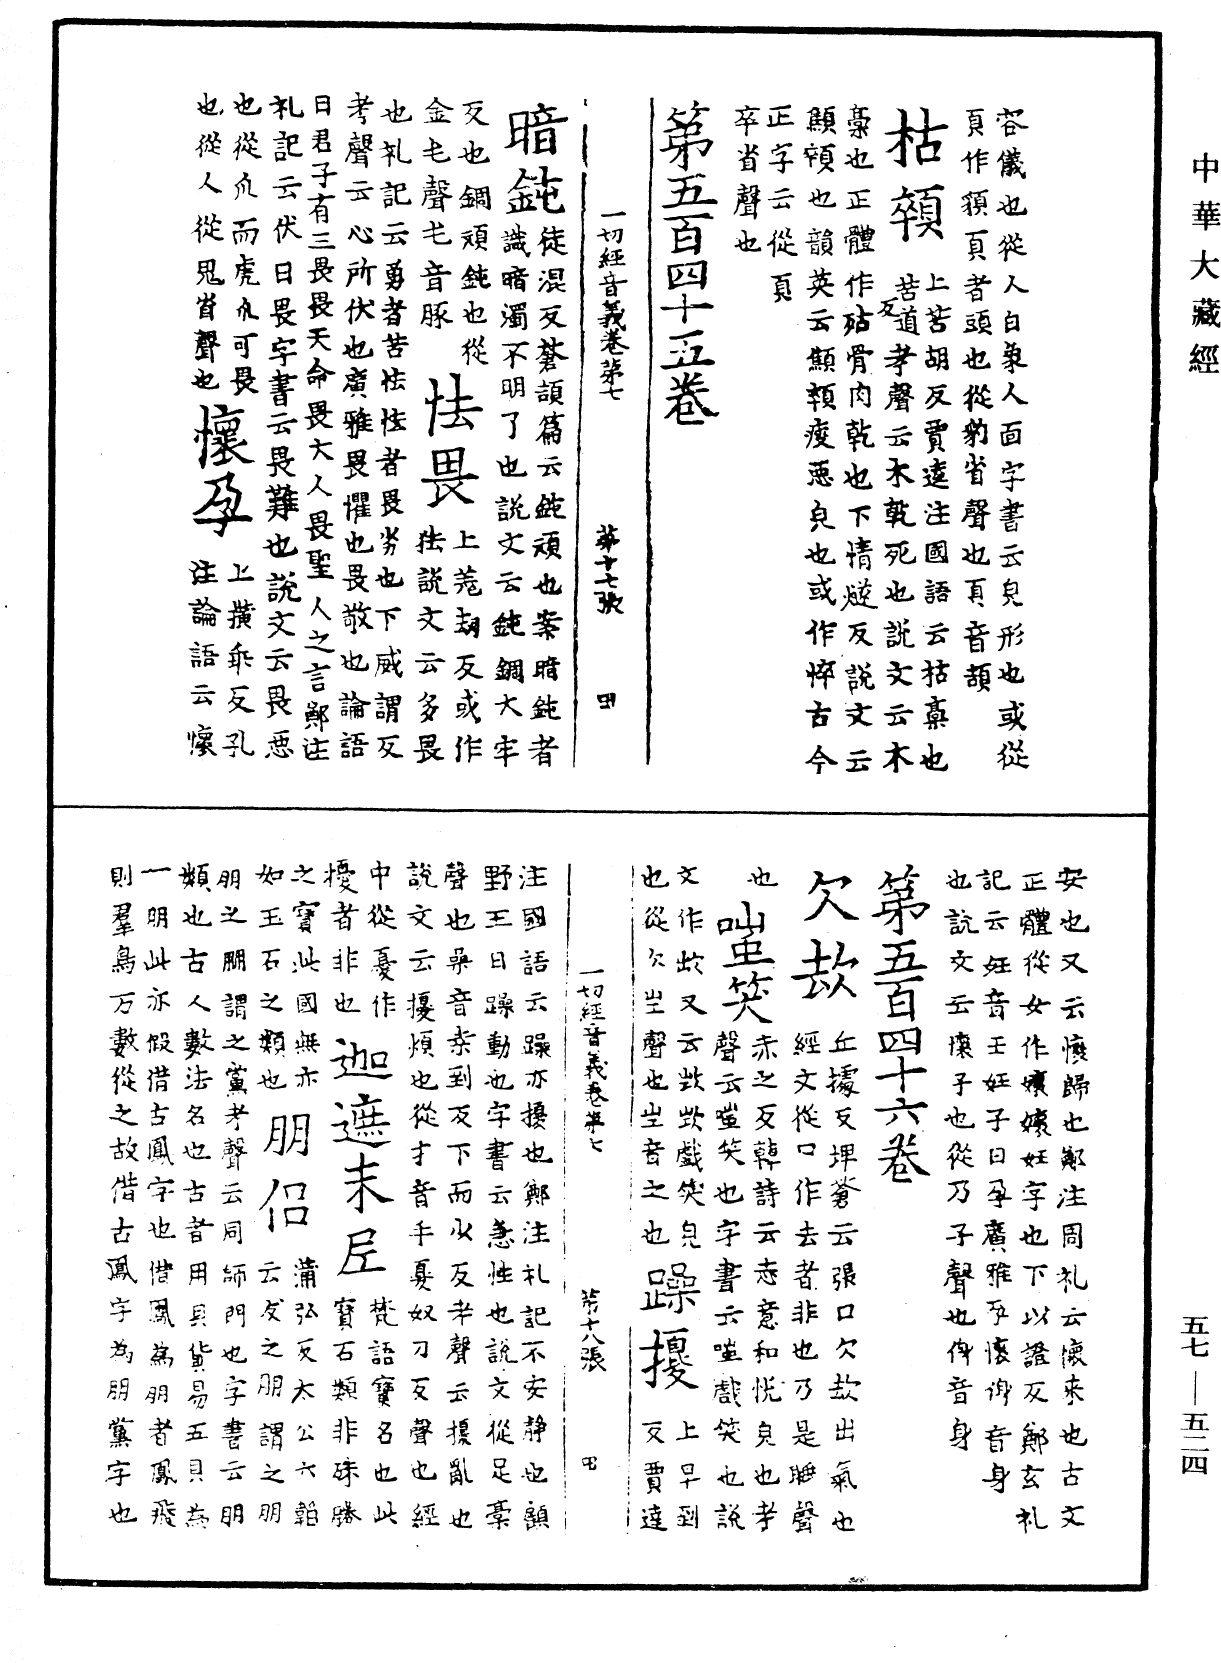 中華大藏經
容儀也從人白象人面字書云皃形也或從
頁作䫉頁者頭也從豹省聲也頁音頡
枯顇
上苦胡反賈逵注國語云枯槀也
苦道反考聲云木乾死也說文云木
槀也正體作𣧻骨肉乾也下情遂反說文云
顦顇也韻英云顦顇瘦惡皃也或作悴古今
正字云從頁
卒省聲也
第五百四十五卷
一切經音義卷第七 第十七張 𭛠
暗鈍
徒混反蒼頡篇云鈍頑也案暗鈍者
識暗濁不明了也說文云鈍錭大牢
反也錭頑鈍也從
金屯聲屯音豚
怯畏
上羌刼反或作
㹤說文云多畏
也礼記云勇者苦怯怯者畏劣也下威謂反
考聲云心所伏也廣雅畏懼也畏敬也論語
曰君子有三畏畏天命畏大人畏聖人之言鄭注
礼記云伏曰畏字書云畏難也說文云畏惡
也從爪而虎爪可畏
也從人從鬼省聲也
懷孕
上橫乖反孔
注論語云懷
安也又云懷歸也鄭注周礼云懷来也古文
正體從女作孃孃妊字也下以證反鄭玄礼
記云妊音壬妊子曰孕廣雅孕懷㑗音身
也說文云懷子也從乃子聲也㑗音身
第五百四十六卷
欠㰦
丘據反埤蒼云張口欠㰦出氣也
經文從口作去者非也乃是𠴬聲
也
嗤笑
赤之反韓詩云志意和悅皃也考
聲云嗤笑也字書云嗤戲笑也說
文作㰞又云㰞㰞戲笑皃
也從欠㞢聲也㞢音之也
躁擾
上早到
反賈逵
一切經音義卷第七 第十八張 𭛠
注國語云躁亦擾也鄭注礼記不安静也顧
野王曰躁動也字書云急性也說文從足喿
聲也喿音桒到反下而沼反考聲云擾亂也
說文云擾煩也從才音手夒奴刀反聲也經
中從憂作
擾者非也
迦遮末尼
梵語寶名也此
寶石類非殊勝
之寶此國無亦
如玉石之類也
朋侶
蒲弘反太公六韜
云友之朋謂之朋
朋之朋謂之黨考聲云同師門也字書云朋
類也古人數法名也古者用貝貨易五貝為
一朋此亦假借古鳳字也借鳳為朋者鳳飛
則羣鳥万數從之故借古鳳字為朋黨字也
五七—五二四